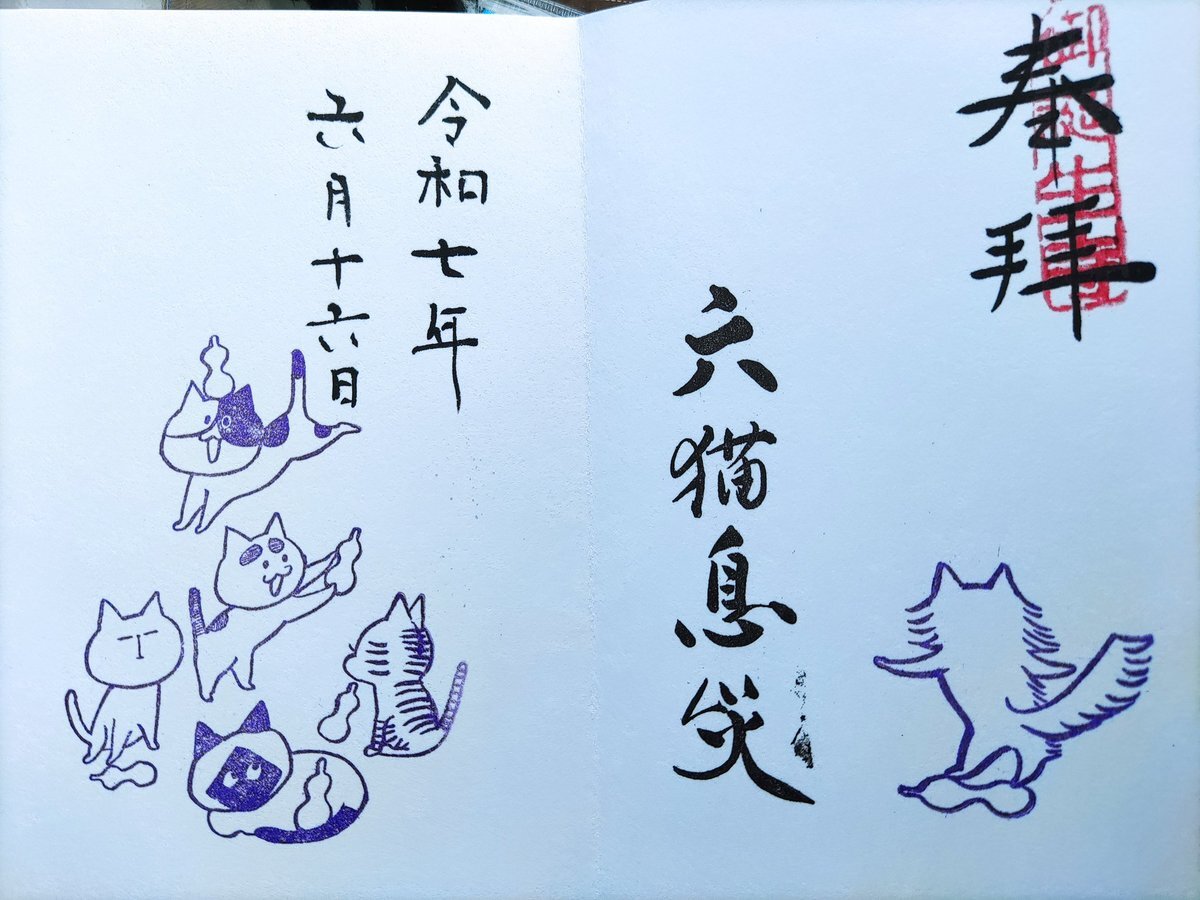 奉拝
御誕生
六猫息災
令和七年
六月十六日